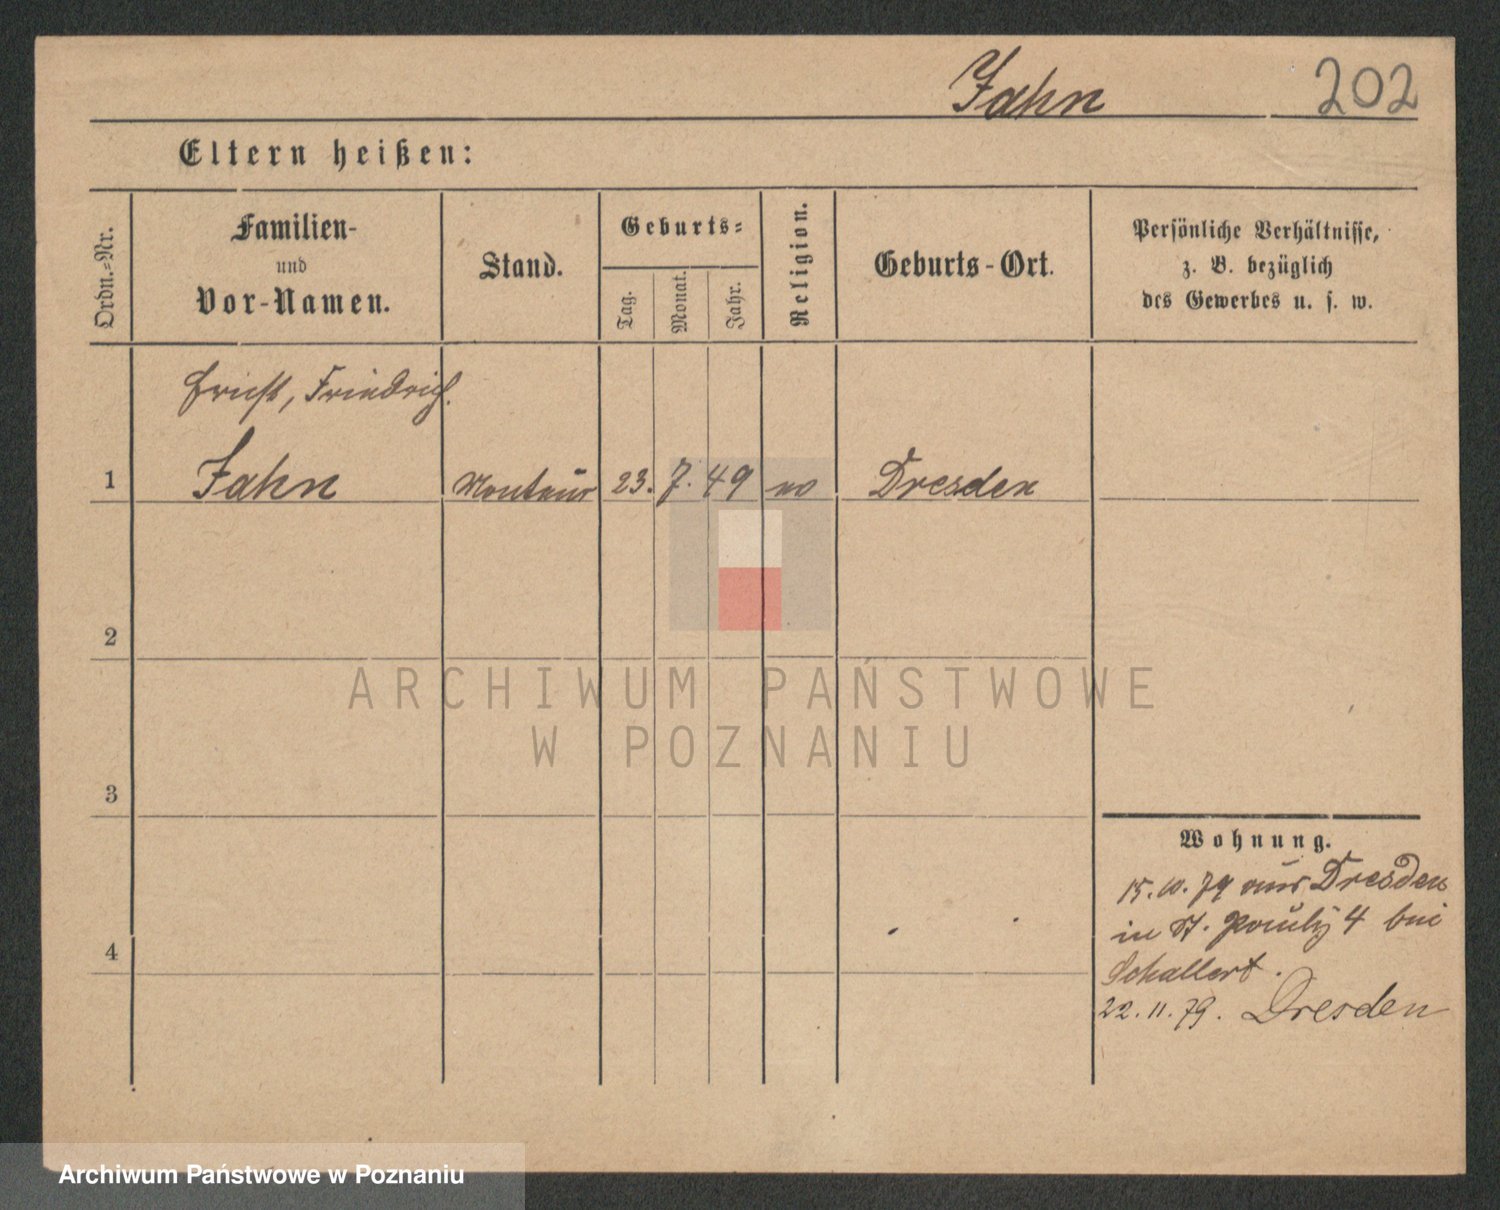 Jahn 202
Eltern heißen:
Ordn.-Nr. Familien- und Vor-Namen. Stand. Geburts- Tag. Monat. Jahr. Religion. Geburts-Ort. Persönliche Verhältnisse,
z. B. bezüglich
des Gewerbes u. s. w.
Ernst, Friedrich.
1 Jahn Monteur 23. 7. 49 Dresden
2
3
4
Wohnung.
15.10.79 aus Dresden
in St. Pauly 4 bei
Schallert.
22.11.79. Dresden
ARCHIWUM PAŃSTWOWE
W POZNANIU
Archiwum Państwowe w Poznaniu